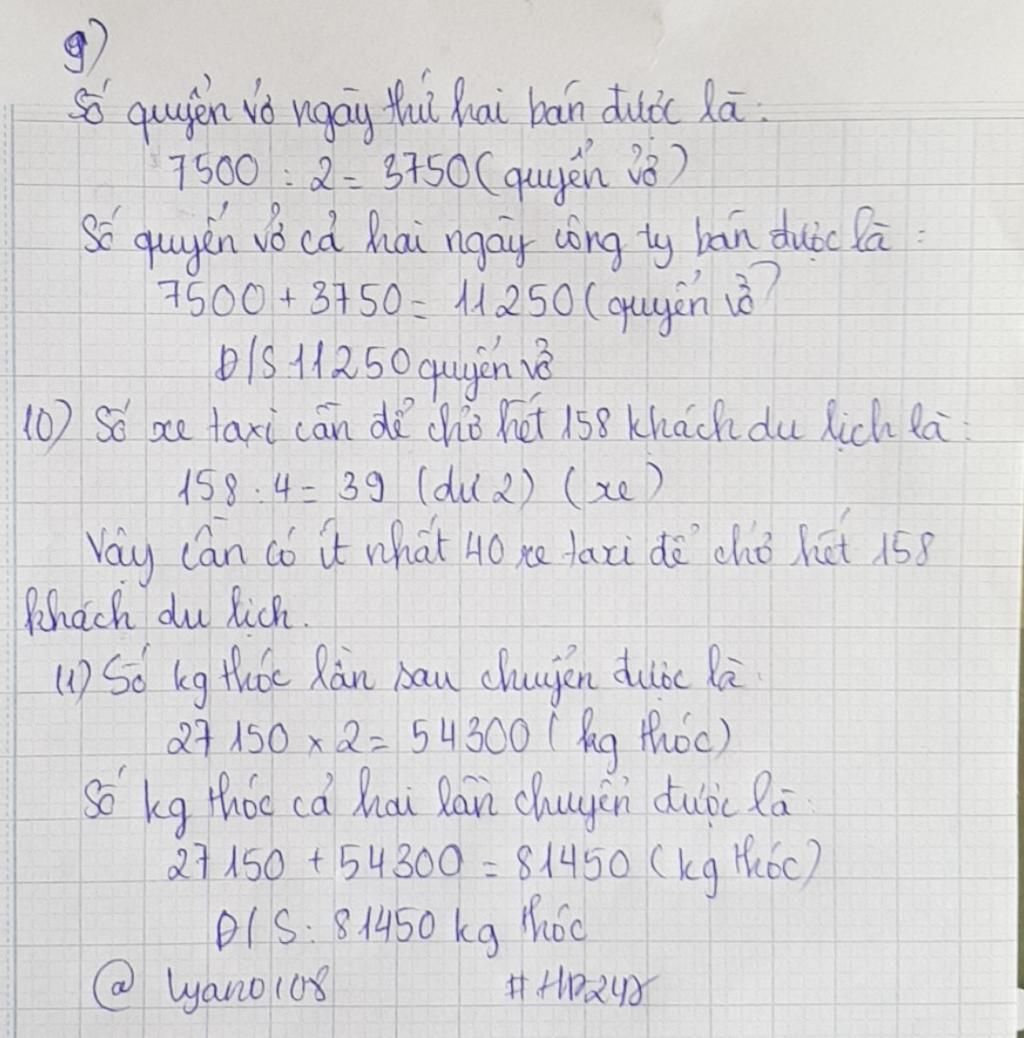 9)
Số quyển vở ngày thứ hai bán được là:
7500 : 2 = 3750 (quyển vở)
Số quyển vở cả hai ngày công ty bán được là:
7500 + 3750 = 11250 (quyển vở)
Đ/S 11250 quyển vở
10) Số xe taxi cần để chở hết 158 khách du lịch là:
158 : 4 = 39 (dư 2) (xe)
Vậy cần có ít nhất 40 xe taxi để chở hết 158
khách du lịch.
11) Số kg thóc lần sau chuyển được là:
27 150 x 2 = 54300 (kg thóc)
Số kg thóc cả hai lần chuyển được là:
27 150 + 54300 = 81450 (kg thóc)
Đ/S: 81450 kg thóc
@ lyano108 #HD247